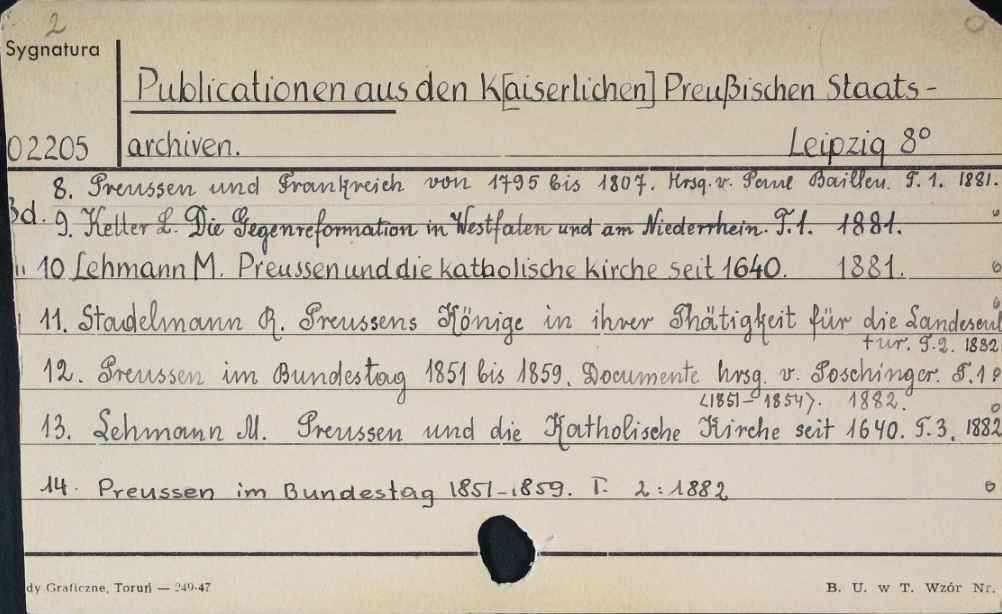 2
Sygnatura
Publicationen aus den K[aiserlichen] Preußischen Staats-
02205 archiven. Leipzig 8°
8. Preussen und Frankreich von 1795 bis 1807. Hrsg. v. Paul Bailleu. T. 1. 1881.
Bd. 9. Keller L. Die Gegenreformation in Westfalen und am Niederrhein. T. 1. 1881.
" 10 Lehmann M. Preussen und die katholische Kirche seit 1640. 1881.
11. Stadelmann R. Preussens Könige in ihrer Thätigkeit für die Landescul
tur. T. 2. 1882
12. Preussen im Bundestag 1851 bis 1859. Documente hrsg. v. Poschinger. T. 1
<1851-1854>. 1882.
13. Lehmann M. Preussen und die Katholische Kirche seit 1640. T. 3. 1882
14. Preussen im Bundestag 1851-1859. T. 2: 1882
dy Graficzne, Toruń — 249-47
B. U. w T. Wzór Nr.